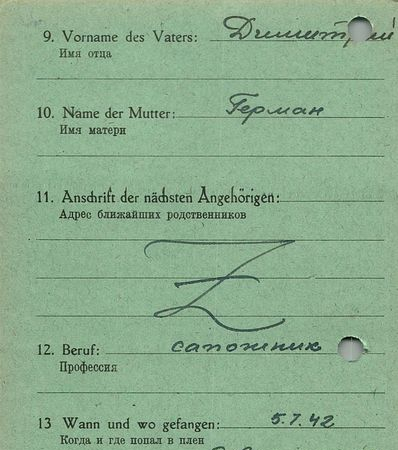 9. Vorname des Vaters: Димитрий
Имя отца
10. Name der Mutter: Герман
Имя матери
11. Anschrift der nächsten Angehörigen:
Адрес ближайших родственников
Z
12. Beruf: сапожник
Профессия
13 Wann und wo gefangen: 5.7.42
Когда и где попал в плен